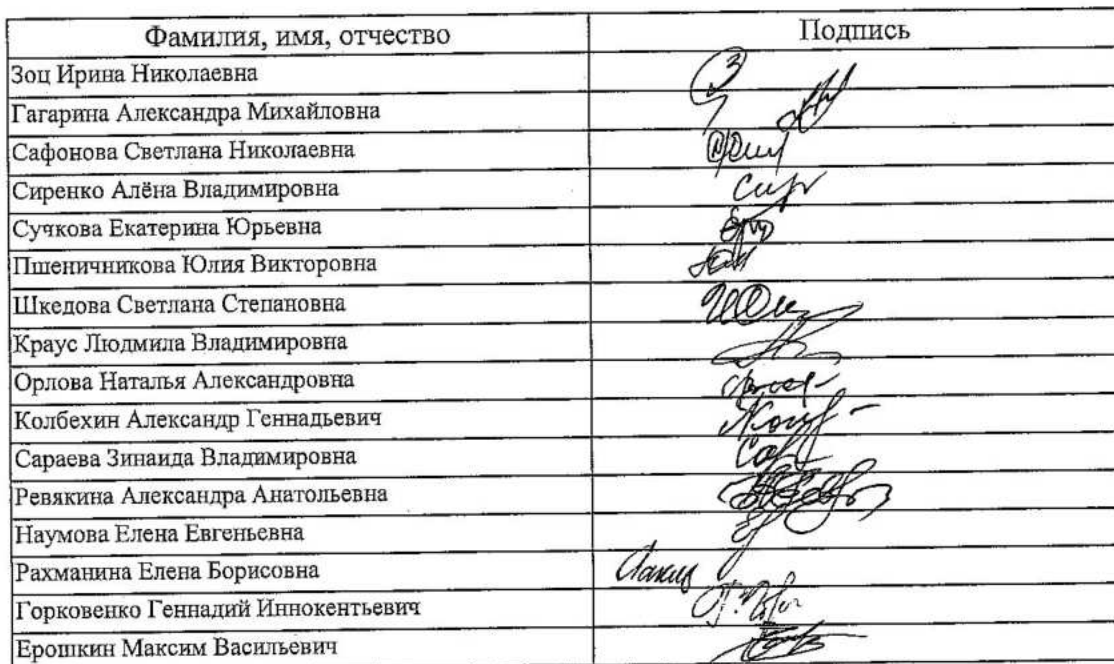 Фамилия, имя, отчество Подпись
Зоц Ирина Николаевна
Гагарина Александра Михайловна
Сафонова Светлана Николаевна
Сиренко Алёна Владимировна
Сучкова Екатерина Юрьевна
Пшеничникова Юлия Викторовна
Шкедова Светлана Степановна
Краус Людмила Владимировна
Орлова Наталья Александровна
Колбехин Александр Геннадьевич
Сараева Зинаида Владимировна
Ревякина Александра Анатольевна
Наумова Елена Евгеньевна
Рахманина Елена Борисовна
Горковенко Геннадий Иннокентьевич
Ерошкин Максим Васильевич